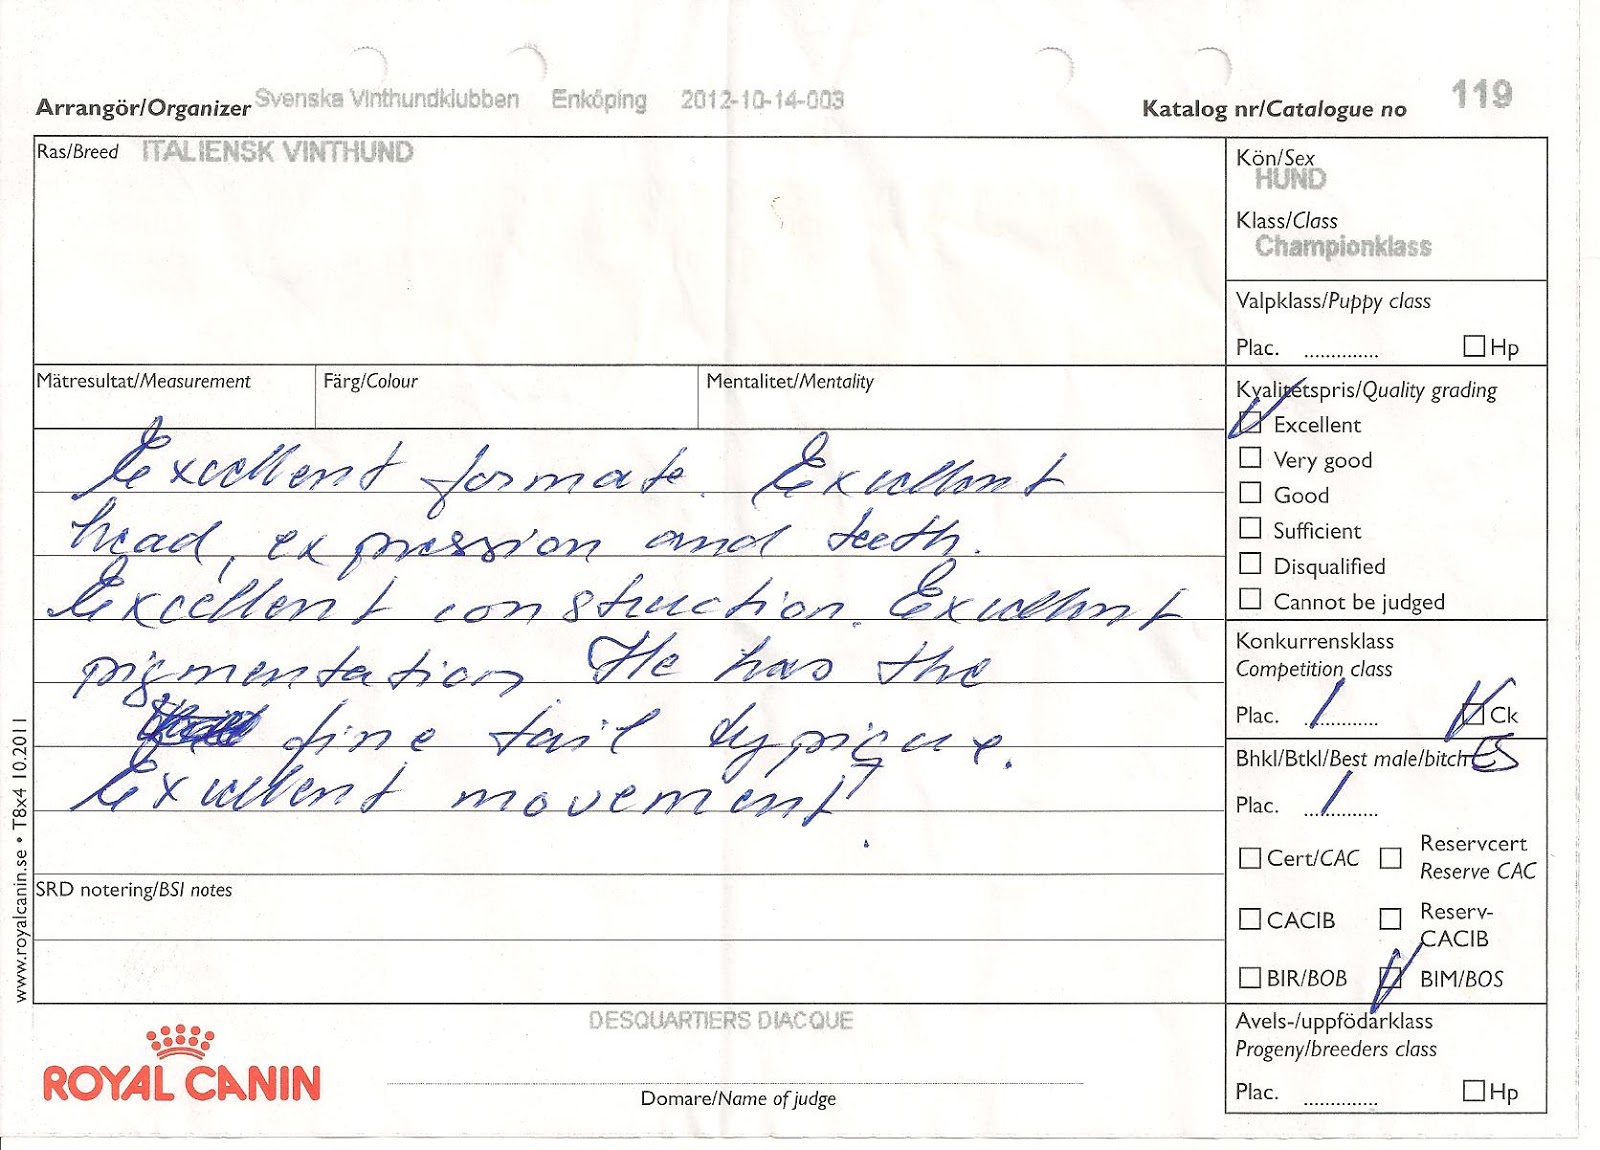 Arrangör/Organizer Svenska Vinthundklubben Enköping 2012-10-14-003 Katalog nr/Catalogue no 119
Ras/Breed ITALIENSK VINTHUND
Kön/Sex
HUND
Klass/Class
Championklass
Valpklass/Puppy class
Plac. .............. Hp
Mätresultat/Measurement Färg/Colour Mentalitet/Mentality
Excellent formate. Excellent
head, expression and teeth.
Excellent construction. Excellent
pigmentation He has the
fine tail typique.
Excellent movement!
Kvalitetspris/Quality grading
Excellent
Very good
Good
Sufficient
Disqualified
Cannot be judged
Konkurrensklass
Competition class
Plac. 1 Ck
Bhkl/Btkl/Best male/bitch
Plac. 1
Cert/CAC Reservcert
Reserve CAC
CACIB Reserv-
CACIB
BIR/BOB BIM/BOS
SRD notering/BSI notes
Avels-/uppfödarklass
Progeny/breeders class
Plac. .............. Hp
DESQUARTIERS DIACQUE
Domare/Name of judge
ROYAL CANIN
www.royalcanin.se • T8x4 10.2011